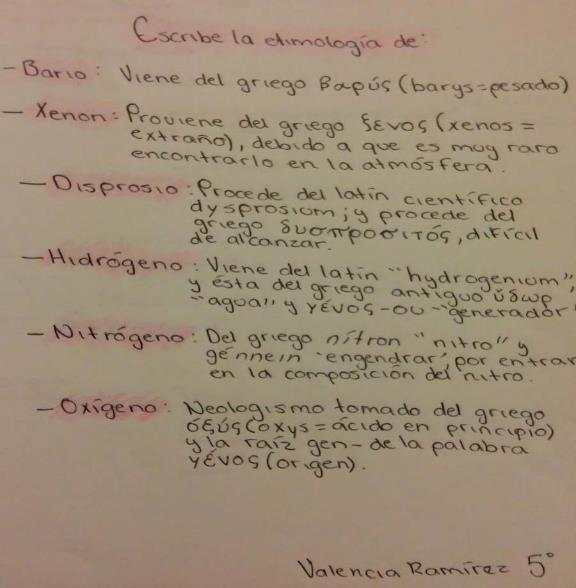 Escribe la etimología de:
- Bario: Viene del griego βαρύς (barys=pesado)
- Xenon: Proviene del griego ξένος (xenos =
extraño), debido a que es muy raro
encontrarlo en la atmósfera.
- Disprosio: Procede del latín científico
dysprosium; y procede del
griego δυσπροσιτός, difícil
de alcanzar.
- Hidrógeno: Viene del latín "hydrogenium",
y ésta del griego antiguo ὕδωρ
"agua" y γένος-ου "generador"
- Nitrógeno: Del griego nítron "nitro" y
génnein 'engendrar', por entrar
en la composición del nitro.
- Oxígeno: Neologismo tomado del griego
οξύς (oxys = ácido en principio)
y la raíz gen- de la palabra
γένος (origen).
Valencia Ramírez 5°